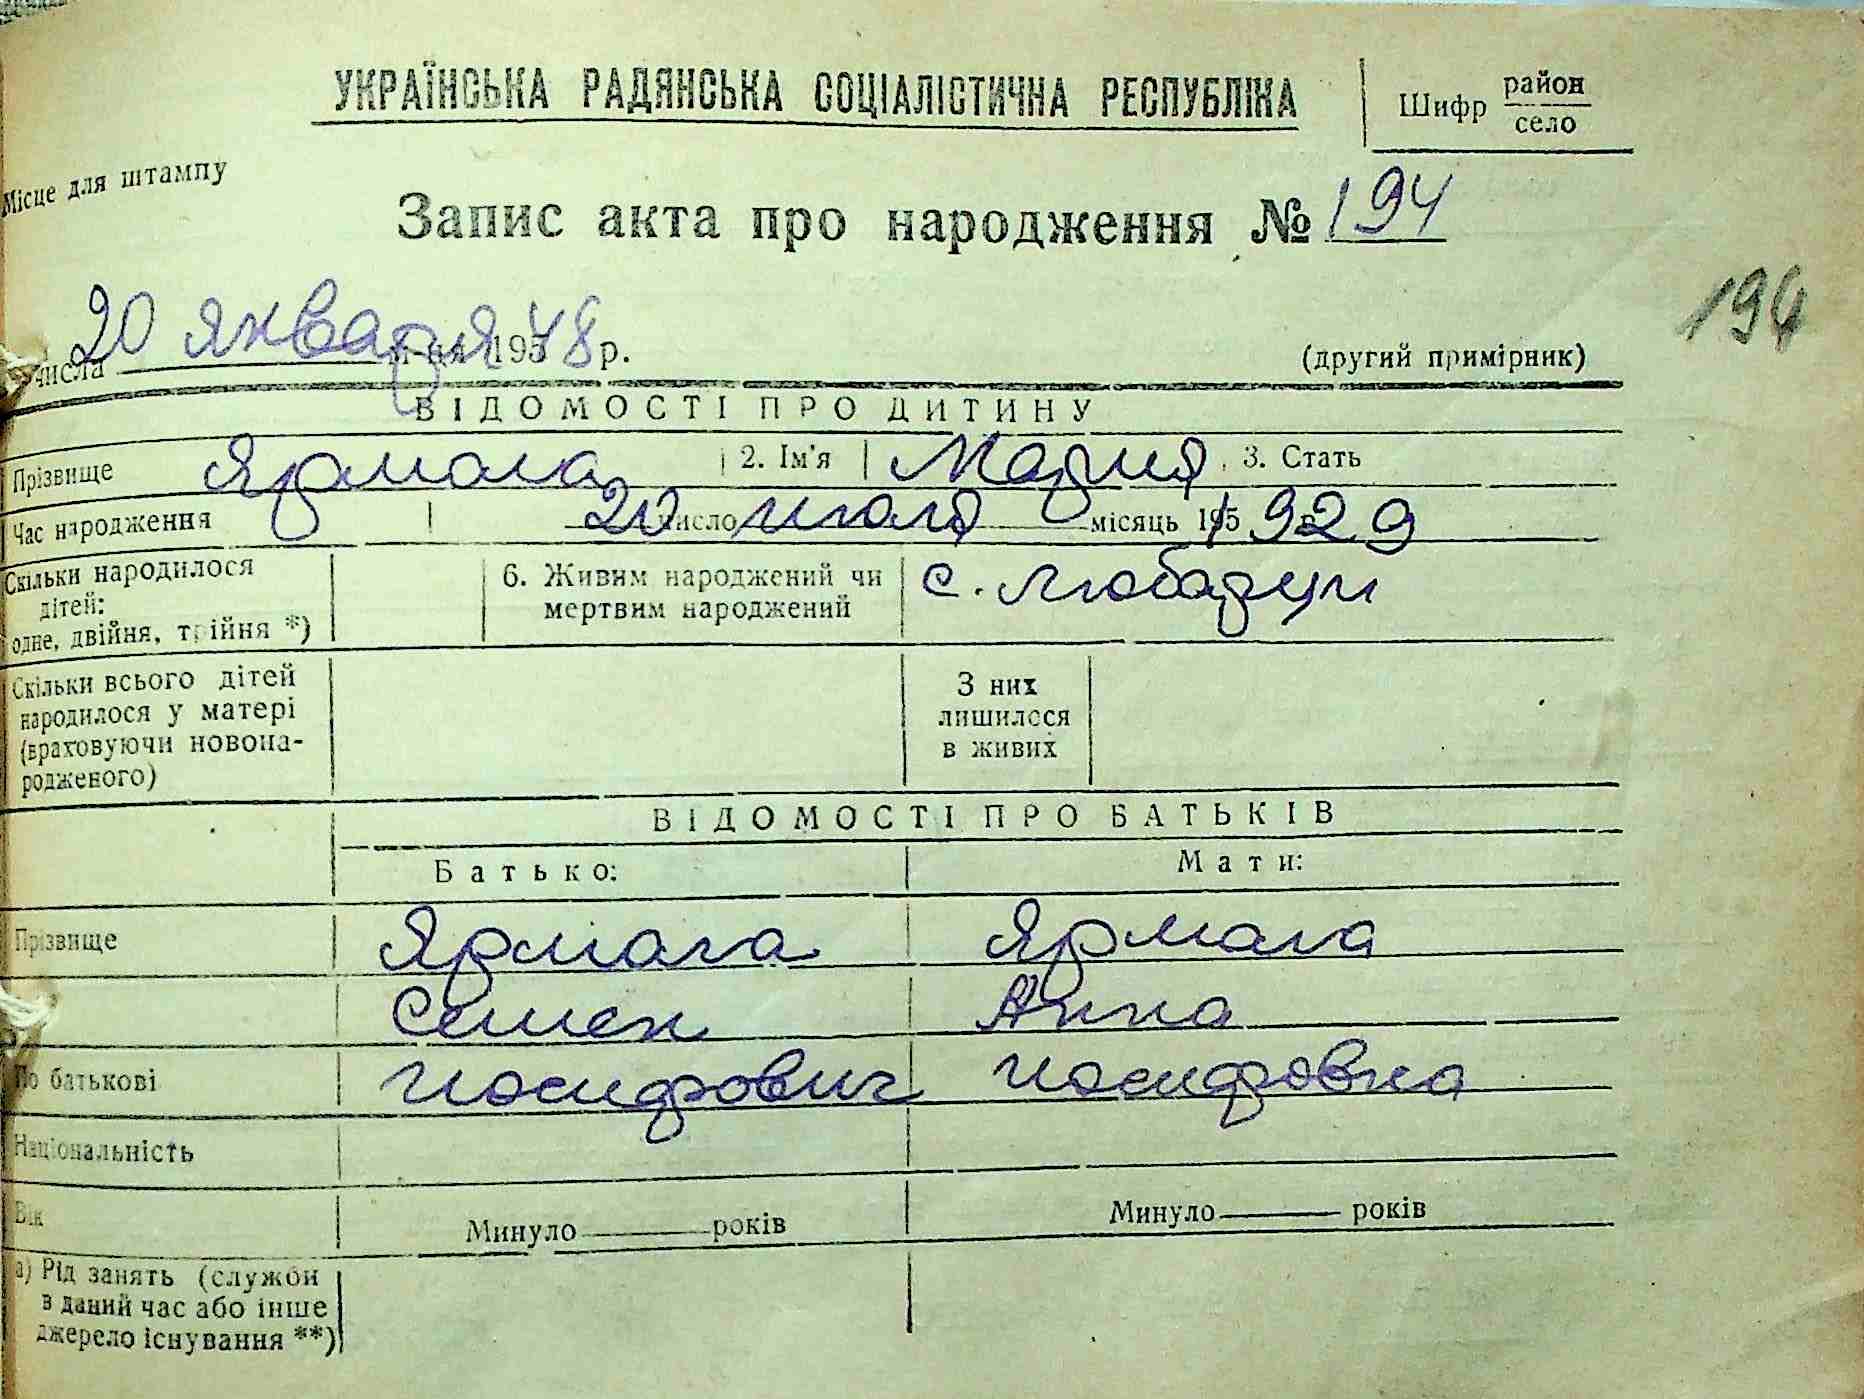 УКРАЇНСЬКА РАДЯНСЬКА СОЦІАЛІСТИЧНА РЕСПУБЛІКА
Шифр район
село
Місце для штампу
Запис акта про народження № 194
194
числа 20 января 195 48 р.
(другий примірник)
ВІДОМОСТІ ПРО ДИТИНУ
Прізвище Ярмола 2. Ім'я Мария 3. Стать
Час народження 20 число июля місяць 195 1929
Скільки народилося дітей: одне, двійня, трійня *) 6. Живим народжений чи мертвим народжений с. Любарци
Скільки всього дітей народилося у матері (враховуючи новонародженого) З них лишилося в живих
ВІДОМОСТІ ПРО БАТЬКІВ
Батько: Мати:
Прізвище Ярмола Ярмола
Семен Анна
По батькові Иосифович Иосифовна
Національність
Вік Минуло років Минуло років
а) Рід занять (служби
в даний час або інше
джерело існування **)